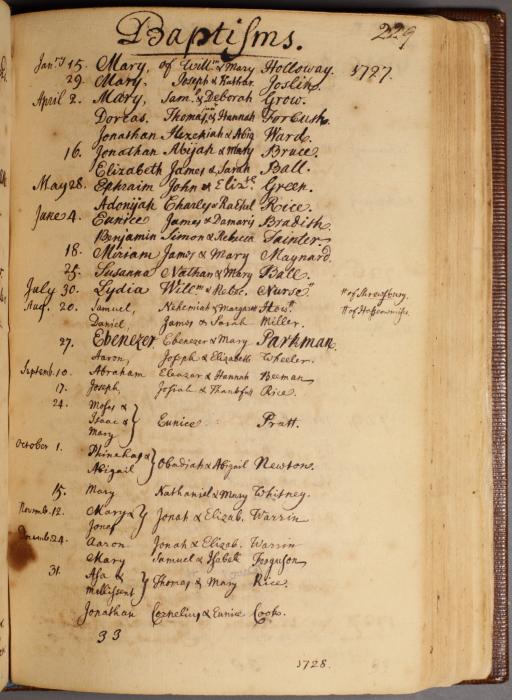 229
Baptisms.
Janry 15. Mary, of Willm & Mary Holloway. 1727.
29. Mary. Joseph & Kathar. Joslin.
April 2. Mary, Saml & Deborah Grow.
Dorcas. Thomas & Hannah Forbush.
Jonathan Hezekiah & Abig Ward.
16. Jonathan Abijah & Mary Bruce.
Elizabeth James & Sarah Ball.
May 28. Ephraim John & Elizth Green.
Adonijah Charles & Rachel Rice.
June 4. Eunice James & Damaris Bradish.
Benjamin Simon & Rebecca Tainter
18. Miriam James & Mary Maynard.
25. Susanna Nathan & Mary Ball.
July 30. Lydia Willm & Rebec. Nurse" "of Shrewsbury.
Aug. 20. Samuel, Nehemiah & Margaret How" "of Hopkinton
Daniel, James & Sarah Miller.
27. Ebenezer Ebenezer & Mary Parkman.
Aaron, Joseph & Elizabeth Wheeler.
Septemb. 10. Abraham Eleazar & Hannah Beeman
17. Joseph, Josiah & Thankful Rice.
24. Moses &
Isaac & Eunice Pratt.
Mary
October 1. Phinehas &
Abigail Obadiah & Abigail Newton.
15. Mary Nathaniel & Mary Whitney.
Novemb. 12. Mary & Jonah & Elizab. Warrin
Jonas
Decemb 24. Aaron Jonah & Elizab. Warrin
Mary Samuel & Isabell Ferguson
31. Asa & Thomas & Mary Rice.
Millissent
Jonathan Cornelius & Eunice Cook.
33
1728.